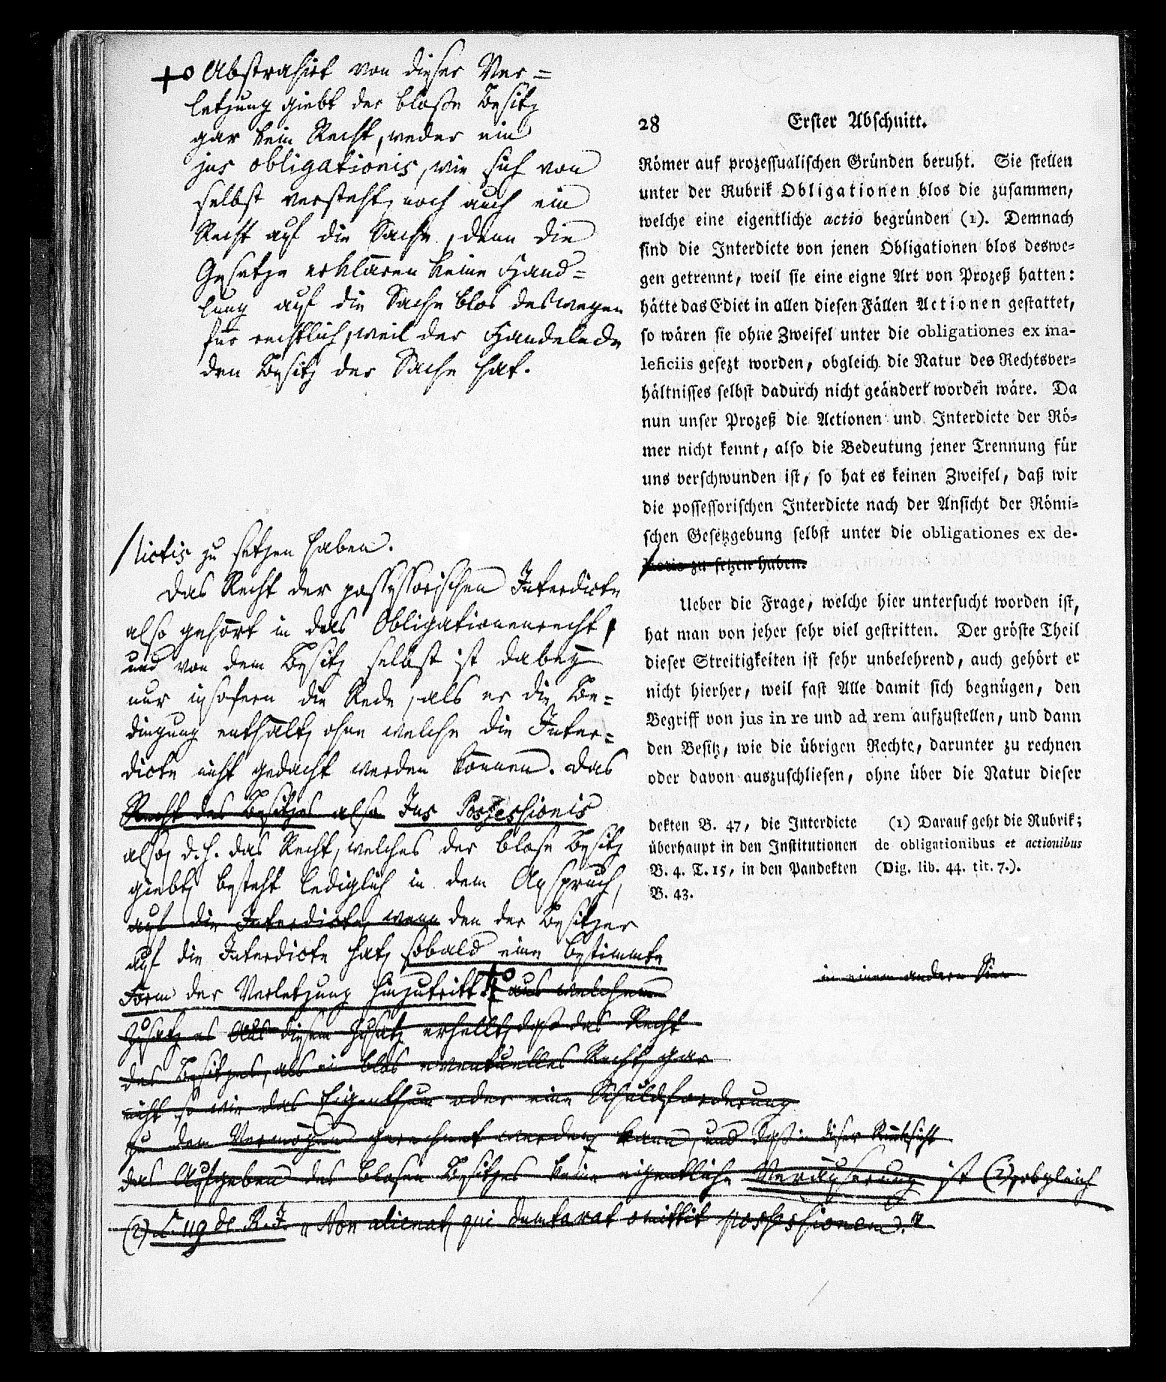 +o Abstrahirt von dieser Ver=
letzung giebt der bloße Besitz
gar kein Recht, weder ein
jus obligationis, wie sich von
selbst versteht, noch auch ein
Recht auf die Sache, denn die
Gesetze erklären keine Hand=
lung auf die Sache blos deswegen
für rechtlich, weil der Handelnde
den Besitz der Sache hat.
/lictis zu setzen haben.
Das Recht der possessorischen Interdicte
also gehört in das Obligationenrecht,
und von dem Besitz selbst ist dabey
nur insofern die Rede, als er die Be=
dingung enthält, ohne welche die Inter=
dicte nicht gedacht werden können. Das
Recht des Besitzes also Jus Possessionis
also, d. h. das Recht, welches der blose Besitz
giebt, besteht lediglich in dem Anspruch,
auf die Interdicte, wenn den der Besitzer
auf die Interdicte hat, sobald eine bestimmte
Form der Verletzung hinzutritt. +o aus welchem
Zusatz es Aus diesem Zusatz erhellt, daß das Recht
des Besitzes, als ein blos eventuelles Recht, gar
nicht so wie das Eigenthum oder eine Schuldforderung
zu dem Vermögen gerechnet werden kann, und daß in dieser Rücksicht
das Aufgeben des blosen Besitzes keine eigentliche Veräuserung ist (2), obgleich
(2) de R. J. "Non alienat, qui dumtaxat omittit possessionem."
28 Erster Abschnitt.
Römer auf prozessualischen Gründen beruht. Sie stellen
unter der Rubrik Obligationen blos die zusammen,
welche eine eigentliche actio begründen (1). Demnach
sind die Interdicte von jenen Obligationen blos deswe-
gen getrennt, weil sie eine eigne Art von Prozeß hatten:
hätte das Edict in allen diesen Fällen Actionen gestattet,
so wären sie ohne Zweifel unter die obligationes ex ma-
leficiis gesezt worden, obgleich die Natur des Rechtsver-
hältnisses selbst dadurch nicht geändert worden wäre. Da
nun unser Prozeß die Actionen und Interdicte der Rö-
mer nicht kennt, also die Bedeutung jener Trennung für
uns verschwunden ist, so hat es keinen Zweifel, daß wir
die possessorischen Interdicte nach der Ansicht der Römi-
schen Gesetzgebung selbst unter die obligationes ex de-
lictis zu setzen haben.
Ueber die Frage, welche hier untersucht worden ist,
hat man von jeher sehr viel gestritten. Der gröste Theil
dieser Streitigkeiten ist sehr unbelehrend, auch gehört er
nicht hierher, weil fast Alle damit sich begnügen, den
Begriff von jus in re und ad rem aufzustellen, und dann
den Besitz, wie die übrigen Rechte, darunter zu rechnen
oder davon auszuschliesen, ohne über die Natur dieser
dekten B. 47, die Interdicte
überhaupt in den Institutionen
B. 4. T. 15, in den Pandekten
B. 43.
(1) Darauf geht die Rubrik;
de obligationibus et actionibus
(Dig. lib. 44. tit. 7.).
in einem andern Sinn